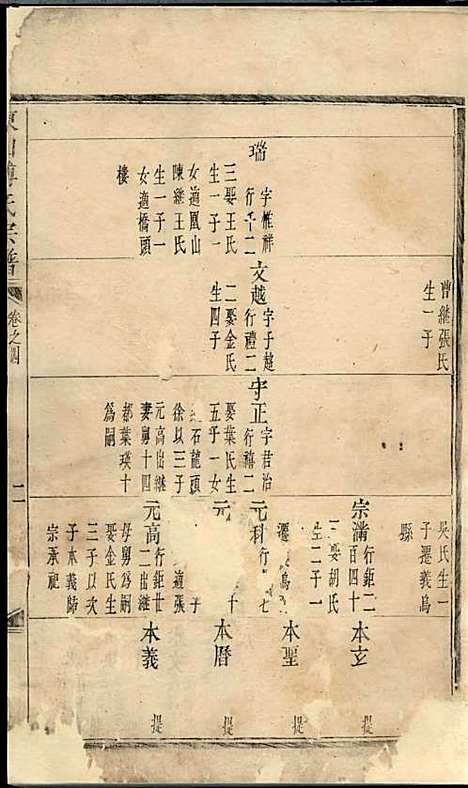 曹继張氏
生一子
吳氏生一
子遷義烏
縣
瑞
字惟祥
行千二
三娶王氏
生一子一
女適鳳山
陳繼王氏
生一子一
女適橋頭
樓
文越
字子越
行禮二
二娶金氏
生四子
守正
字君治
行禧二
娶葉氏生
五子一女
石龍頭
徐以三子
元高出繼
妻舅十四
都葉瑛十
為嗣
宗滿
行鉅二
百四十
二娶胡氏
生二子一
元科
行
七
遷烏
元
十
子
適張
元高
行鉅廿
二出繼
好舅為嗣
娶金氏生
三子以次
子本義歸
宗承祀
本立
提
本聖
提
本曆
提
本義
提
氏宗譜
卷之四
二